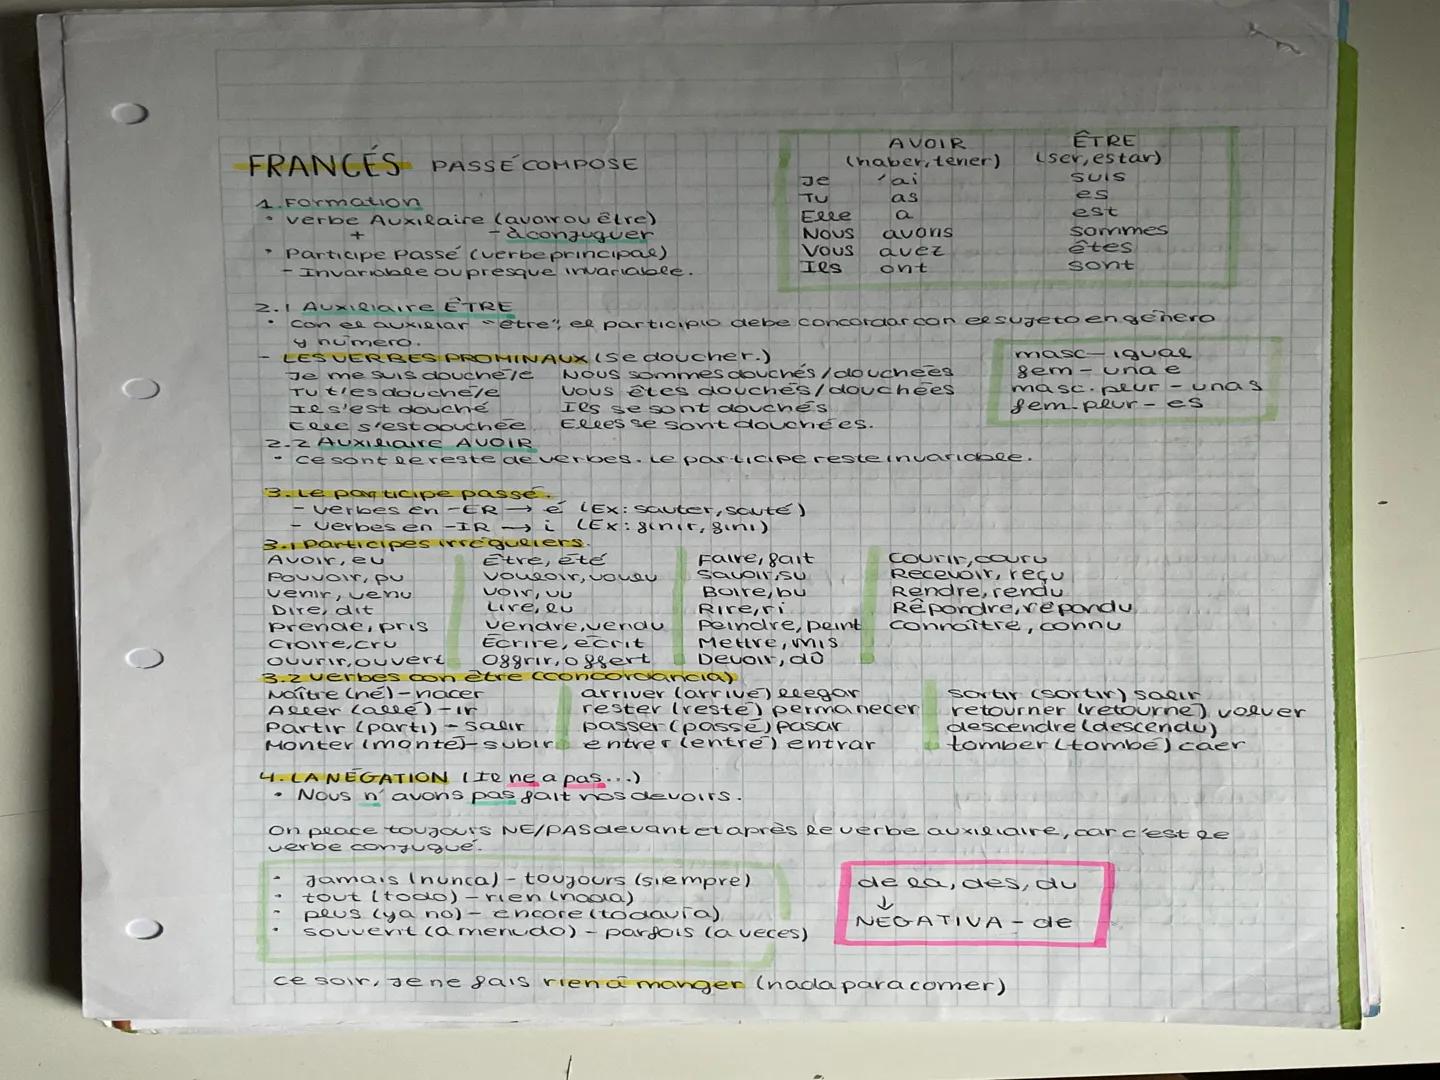 FRANCÉS PASSÉ COMPOSE
AVOIR ÊTRE
(haber, tener) (ser, estar)
Je 'ai suis
Tu as es
Elle a est
Nous avons sommes
Vous avez êtes
Ils ont sont
1. Formation
• Verbe Auxilaire (avoir ou être)
+ - à conjuguer
• Participe Passé (verbe principal)
- Invariable ou presque invariable.
2.1 Auxiliaire ÊTRE
• Con el auxiliar "être", el participio debe concordar con el sujeto en género
y número.
- LES VERBES PROMINAUX (se doucher.)
Je me suis douché/e Nous sommes douchés/douchées
Tu t'es douché/e Vous êtes douchés/douchées
Il s'est douché Ils se sont douchés
Elle s'est douchée Elles se sont douchées.
masc - igual
fem - una e
masc. plur - una s
fem. plur - es
2.2 Auxiliaire AVOIR
• Ce sont le reste de verbes. Le participe reste invariable.
3. Le participe passé.
- Verbes en -ER → é (Ex: sauter, sauté)
- Verbes en -IR → i (Ex: finir, fini)
3.1 Participes irréguliers.
Avoir, eu Être, été Faire, fait Courir, couru
Pouvoir, pu Vouloir, voulu Savoir, su Recevoir, reçu
Venir, venu Voir, vu Boire, bu Rendre, rendu
Dire, dit Lire, lu Rire, ri Répondre, répondu
Prende, pris Vendre, vendu Peindre, peint Connaître, connu
Croire, cru Écrire, écrit Mettre, mis
Ouvrir, ouvert Offrir, offert Devoir, dû
3.2 Verbes con être (concordancia)
Naître (né) - nacer arriver (arrivé) llegar sortir (sortir) salir
Aller (allé) - ir rester (resté) permanecer retourner (retourné) volver
Partir (parti) - salir passer (passé) pasar descendre (descendu)
Monter (monté) - subir entrer (entré) entrar tomber (tombé) caer
4. LA NÉGATION (Il ne a pas...)
• Nous n'avons pas fait nos devoirs.
On place toujours NE/PAS devant et après le verbe auxiliaire, car c'est le
verbe conjugué.
• Jamais (nunca) - toujours (siempre)
• tout (todo) - rien (nada)
• plus (ya no) - encore (todavía)
• souvent (a menudo) - parfois (a veces)
de la, des, du
↓
NEGATIVA - de
Ce soir, je ne fais rien à manger (nada para comer)